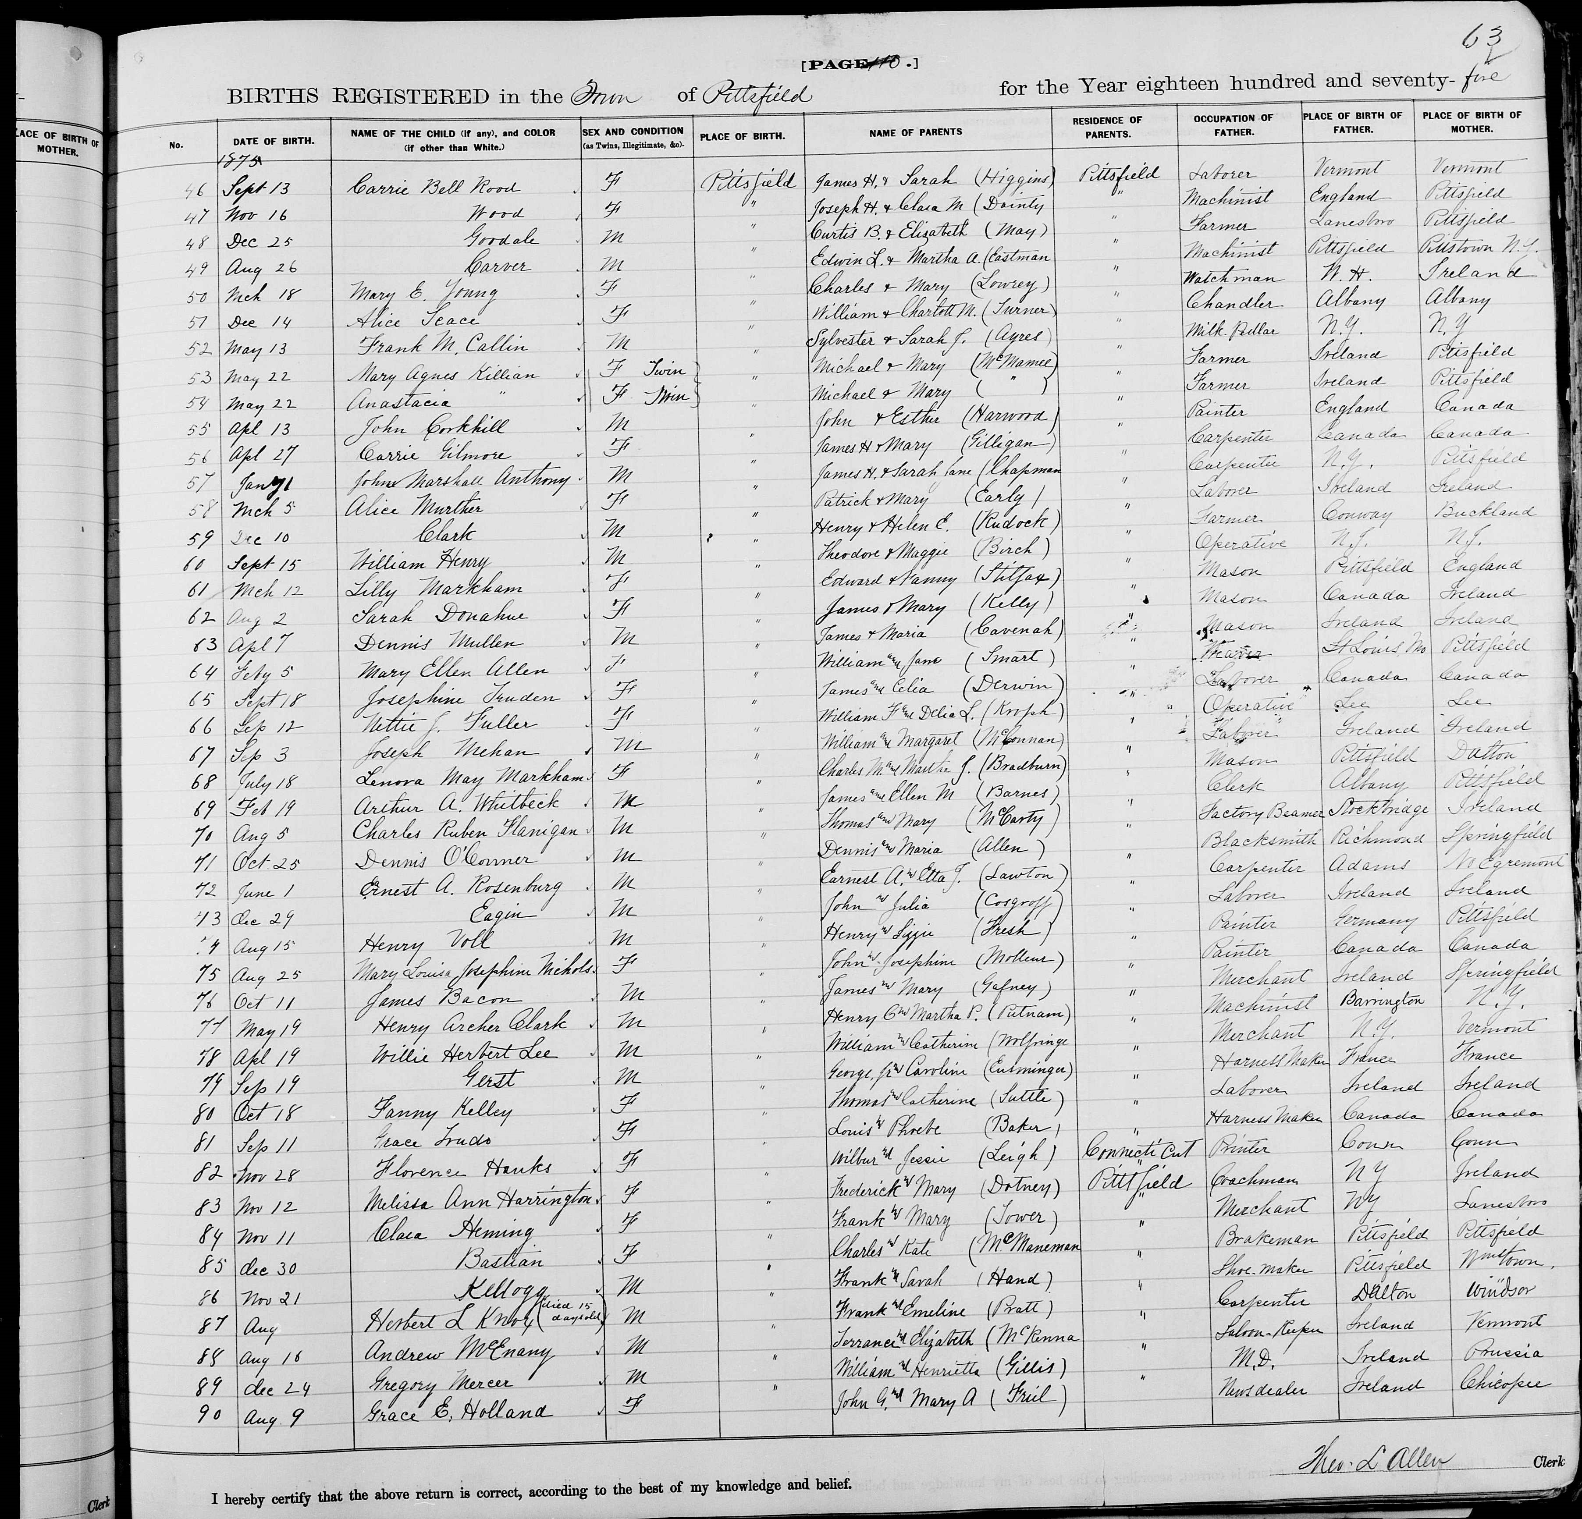 63
[PAGE 110.]
BIRTHS REGISTERED in the Town of Pittsfield for the Year eighteen hundred and seventy-five
LACE OF BIRTH OF MOTHER.
No. DATE OF BIRTH. NAME OF THE CHILD (if any), and COLOR (if other than White.) SEX AND CONDITION (as Twins, Illegitimate, &c). PLACE OF BIRTH. NAME OF PARENTS RESIDENCE OF PARENTS. OCCUPATION OF FATHER. PLACE OF BIRTH OF FATHER. PLACE OF BIRTH OF MOTHER.
1875
46 Sept 13 Carrie Bell Rood F Pittsfield James H. & Sarah (Higgins) Pittsfield Laborer Vermont Vermont
47 Nov 16 Wood F " Joseph H. & Clara M (Dainty " Machinist England Pittsfield
48 Dec 25 Goodale M " Curtis B. & Elizabeth (May) " Farmer Lanesboro Pittsfield
49 Aug 26 Carver M " Edwin L. & Martha A (Eastman " Machinist Pittsfield Pittstown N.Y.
50 Mch 18 Mary E. Young F " Charles & Mary (Lowrey) " Watchman N.H. Ireland
51 Dec 14 Alice Seace F " William & Charlott M. (Turner) " Chandler Albany Albany
52 May 13 Frank M. Callin M " Sylvester & Sarah J. (Ayres) " Milk Pedlar N.Y. N.Y
53 May 22 Mary Agnes Killian F Twin " Michael & Mary (McNamee) " Farmer Ireland Pittsfield
54 May 22 Anastacia " F Twin " Michael & Mary ( " ) " Farmer Ireland Pittsfield
55 Apl 13 John Corkhill M " John & Esther (Harwood) " Painter England Canada
56 Apl 27 Carrie Gilmore F " James H & Mary (Gilligan) " Carpenter Canada Canada
57 Jany 1 John Marshall Anthony M " James H. & Sarah Jane (Chapman " Carpenter N.Y. Pittsfield
58 Mch 5 Alice Murther F " Patrick & Mary (Early) " Laborer Ireland Ireland
59 Dec 10 Clark M " Henry & Helen E. (Rudock) " Farmer Conway Buckland
60 Sept 15 William Henry M " Theodore & Maggie (Birch) " Operative N.J. N.J.
61 Mch 12 Lilly Markham F " Edward & Fanny (Stilfax) " Mason Pittsfield England
62 Aug 2 Sarah Donahue F " James & Mary (Kelly) " Mason Canada Ireland
63 Apl 7 Dennis Mullen M " James & Maria (Cavenah) " Mason Ireland Ireland
64 Feby 5 Mary Ellen Allen F " William and Jane (Smart) " Weaver St Louis, Mo Pittsfield
65 Sept 18 Josephine Truden F " James and Celia (Derwin) " Laborer Canada Canada
66 Sep 12 Nettie J. Fuller F " William F and Delia L. (Kroph) " Operative Lee Lee
67 Sep 3 Joseph Mehan M " William and Margaret (McConnan) " Laborer Ireland Ireland
68 July 18 Lenora May Markham F " Charles M and Martha J. (Bradburn) " Mason Pittsfield Dalton
69 Feb 19 Arthur A. Whitbeck M " James and Ellen M (Barnes) " Clerk Albany Pittsfield
70 Aug 5 Charles Ruben Flanigan M " Thomas and Mary (McCarty) " Factory Beamer Stockbridge Ireland
71 Oct 25 Dennis O'Conner M " Dennis and Maria (Allen) " Blacksmith Richmond Springfield
72 June 1 Ernest A. Rosenburg M " Earnest A. and Etta T. (Lawton) " Carpenter Adams N Egremont
73 Dec 29 Eagin M " John and Julia (Cosgroff) " Laborer Ireland Ireland
74 Aug 15 Henry Voll M " Henry and Lizzie (Fresh) " Painter Germany Pittsfield
75 Aug 25 Mary Louisa Josephine Nichols F " John and Josephine (Molleur) " Painter Canada Canada
76 Oct 11 James Bacon M " James and Mary (Gafney) " Merchant Ireland Springfield
77 May 19 Henry Archer Clark M " Henry C and Martha P. (Putnam) " Machinist Barrington N.Y.
78 Apl 19 Willie Herbert Lee M " William and Catherine (Wolfringe " Merchant N.Y. Vermont
79 Sep 19 Gerst M " George, Jr and Caroline (Enlminger) " Harness Maker France France
80 Oct 18 Fanny Kelley F " Thomas and Catherine (Suttle) " Laborer Ireland Ireland
81 Sep 11 Grace Trudo F " Louis & Phoebe (Baker) " Harness Maker Canada Canada
82 Nov 28 Florence Hanks F " Wilbur and Jessie (Leigh) Connecticut Printer Conn Conn
83 Nov 12 Melissa Ann Harrington F " Frederick & Mary (Dotney) Pittsfield Coachman N Y Ireland
84 Nov 11 Clara Heming F " Frank & Mary (Tower) " Merchant NY Lanesboro
85 dec 30 Bastian F " Charles & Kate (McManeman " Brakeman Pittsfield Pittsfield
86 Nov 21 Kellogg M " Frank & Sarah (Hand) " Shoe-maker Pittsfield Wmstown.
87 Aug Herbert L Knox (died 15 days old) M " Frank and Emeline (Pratt) " Carpenter Dalton Windsor
88 Aug 16 Andrew McEnany M " Terrance and Elizabeth (McKenna " Saloon-Keeper Ireland Vermont
89 dec 24 Gregory Mercer M " William and Henrietta (Gillis) " M.D. Ireland Prussia
90 Aug. 9 Grace E. Holland F John G. and Mary A (Friil) Newsdealer Ireland Chicopee
Theo. L Allen Clerk
I hereby certify that the above return is correct, according to the best of my knowledge and belief.
Clerk